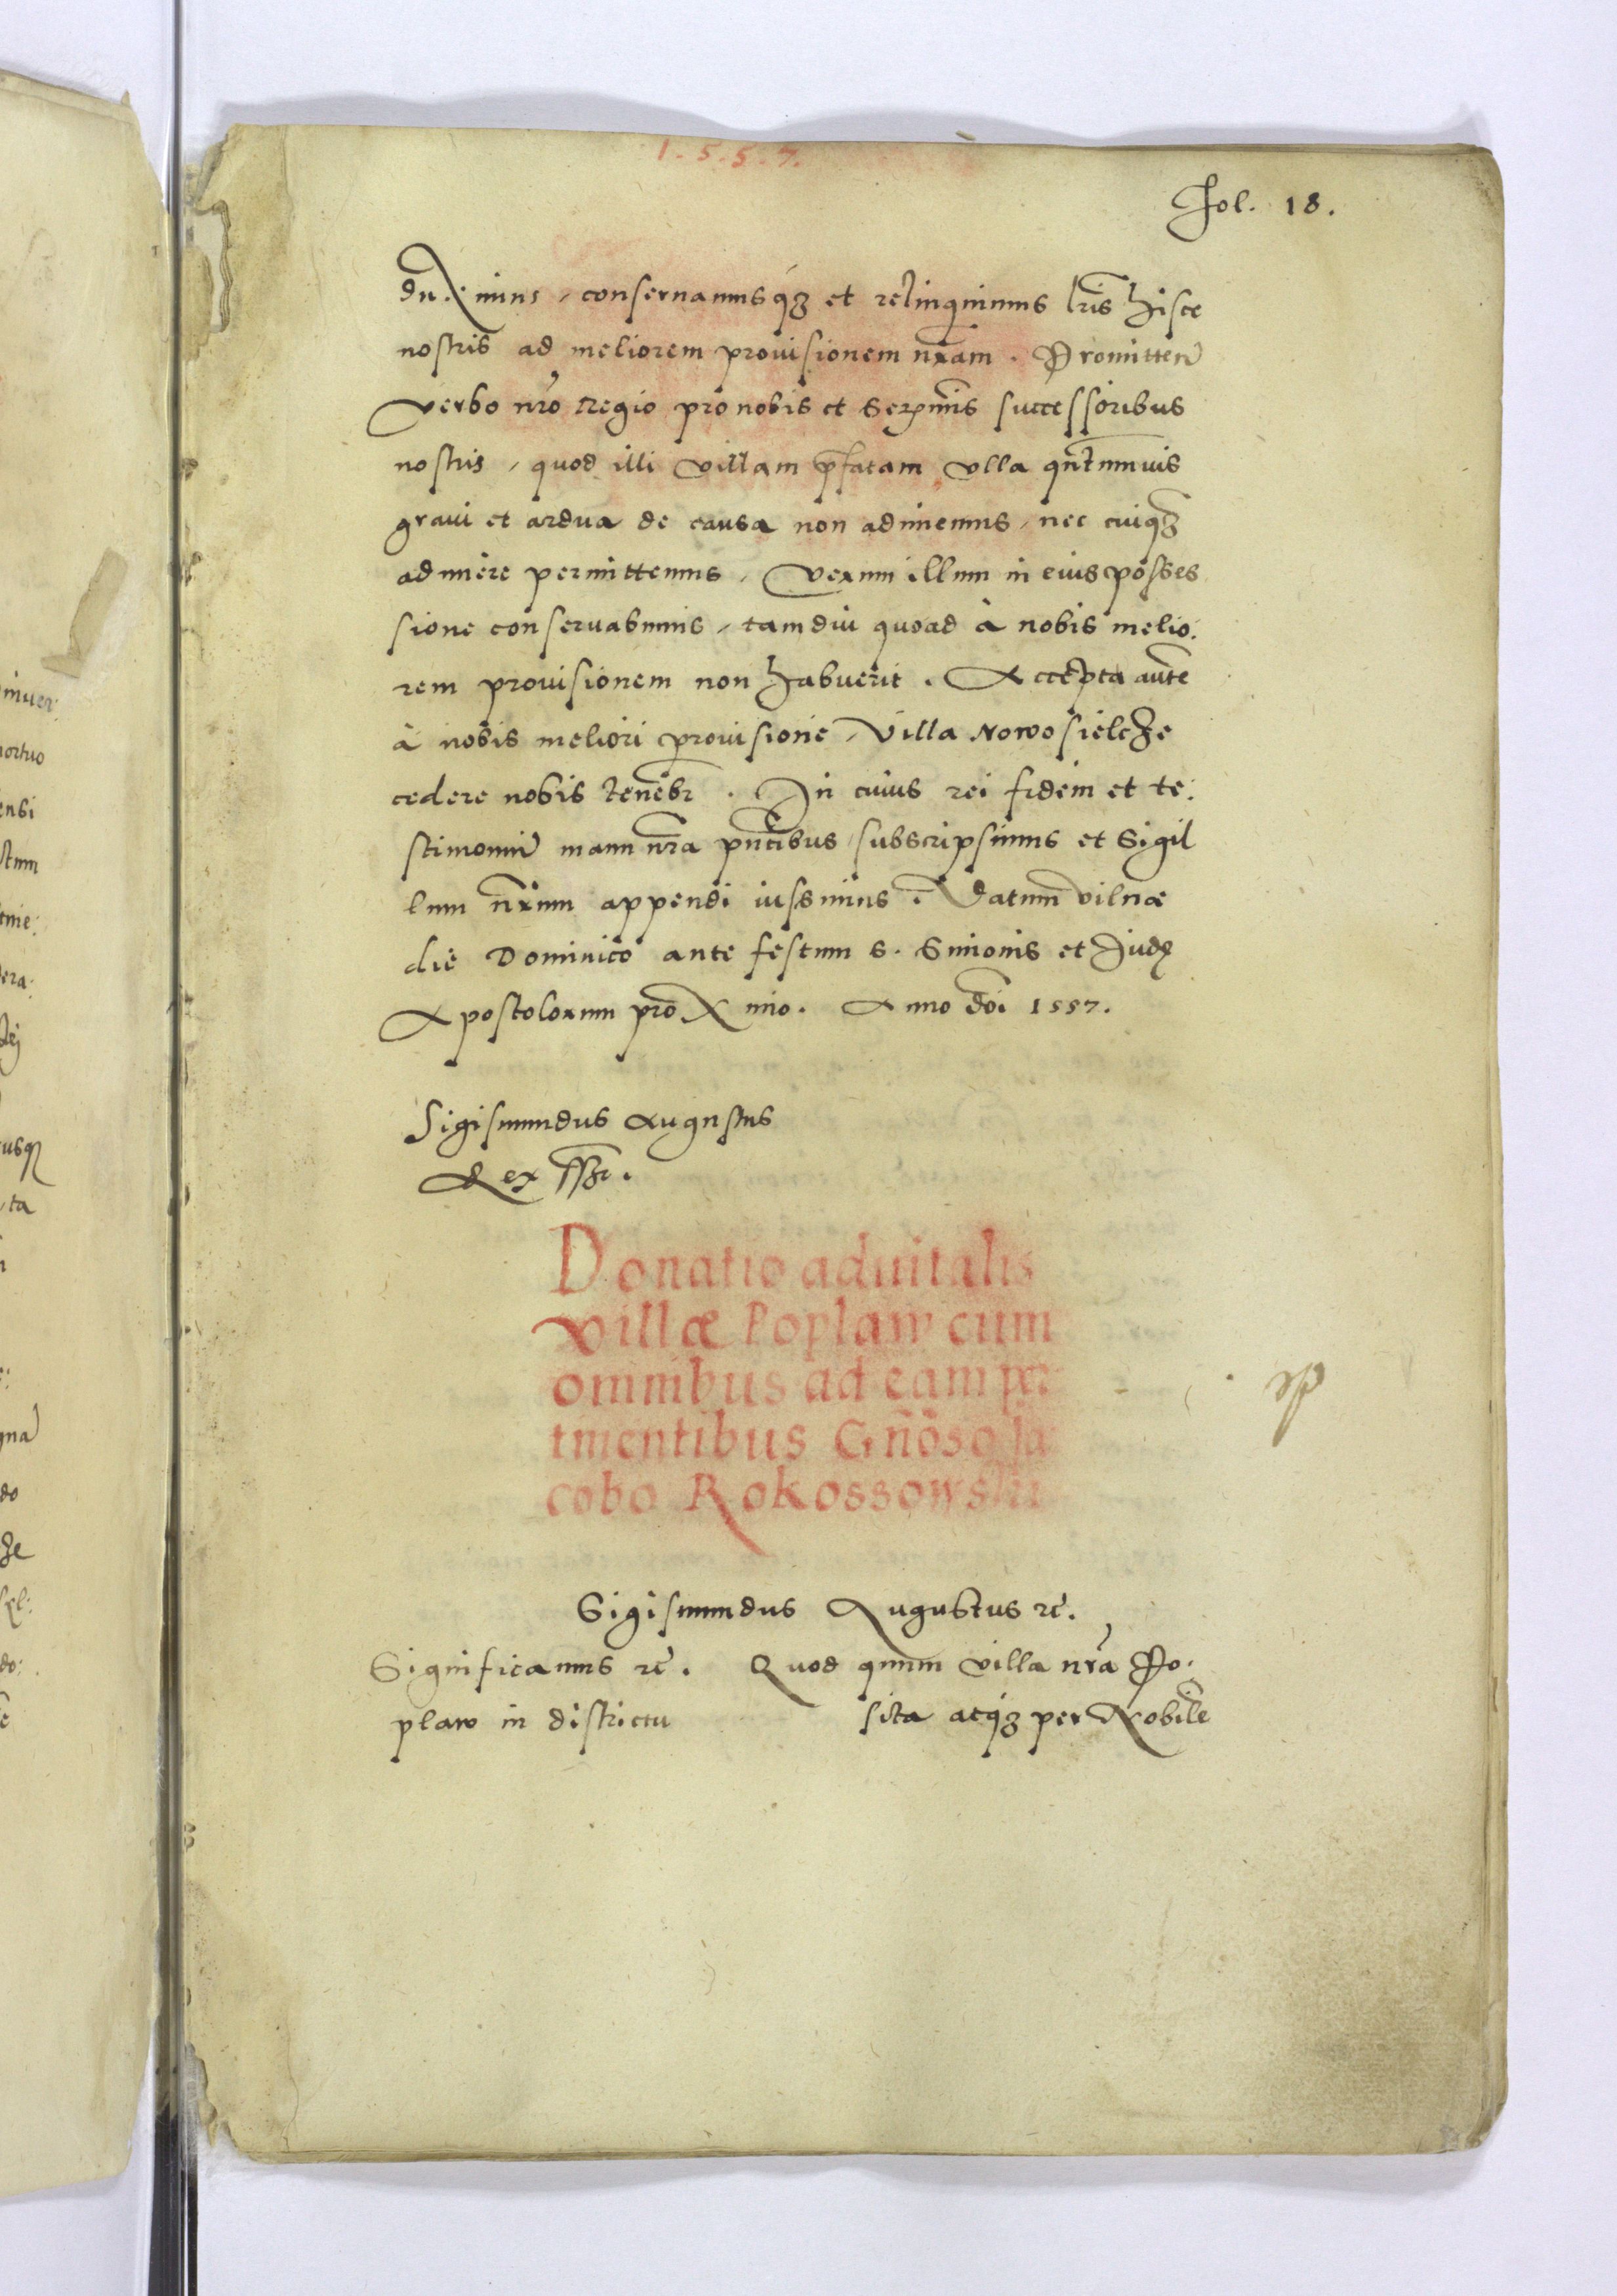 1.5.5.7.
Fol. 18.
duximus, conservamusq3 et relinquimus lr̃is hisce
nostris ad meliorem provisionem nr̃am. Promitteñ
verbo nr̃o Regio pro nobis et Serenmis successoribus
nostris, quod illi villam p̃fatam ulla qñtumvis
gravi et ardua de causa non adimemus, nec cuiq3
adimere permittemus, verum illum in eius posses
sione conservabimus, tamdiu quoad à nobis melio:
rem provisionem non habuerit. Accepta autẽ
à nobis meliori provisione, Villa Nowosielcze
cedere nobis tenebr̃. In cuius rei fidem et te:
stimoniũ manu nr̃a pñtibus subscripsimus et Sigil
lum nr̃um appendi iussimus. Datum Vilnæ
die Dominico ante festum S. Simonis et Judę
Apostolorum proximo. Anno Dñi 1557.
Sigismundus Augustus
Rex sst.
Donatio aduitalis
villæ Poplaw cum
omnibus ad eam per
tinentibus Gñoso Ja
cobo Rokossowski
Sigismundus Augustus ꝛc̃.
Significamus ꝛc̃. Quod quum villa nr̃a Po:
plaw in districtu sita atq3 per Nobilẽ